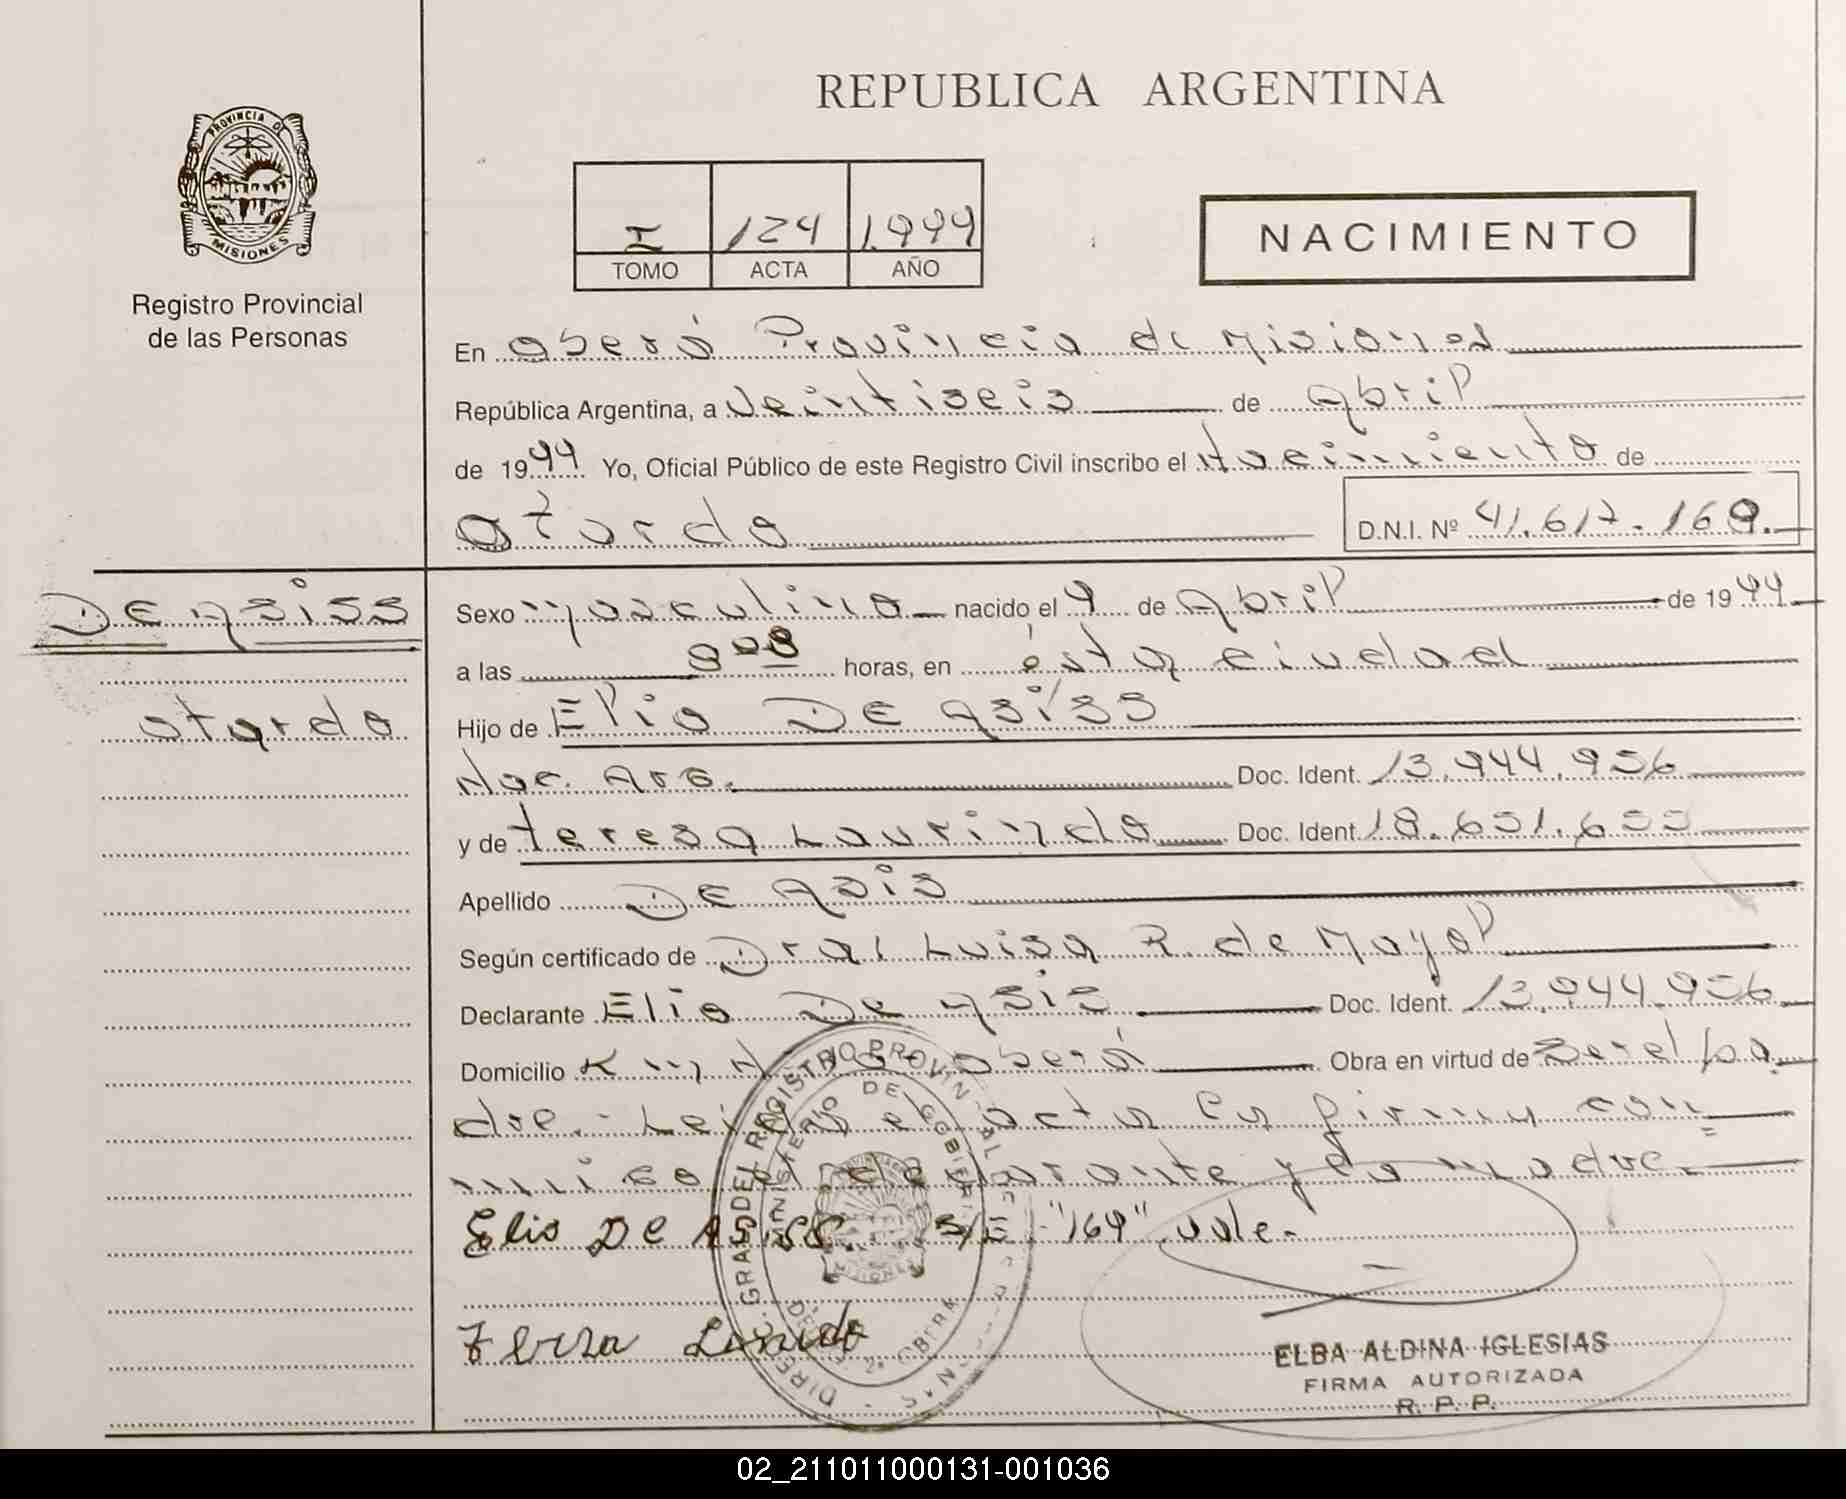 REPUBLICA ARGENTINA
PROVINCIA DE
MISIONES
Registro Provincial
de las Personas
I 124 1.999
TOMO ACTA AÑO
NACIMIENTO
En Oberá Provincia de Misiones
República Argentina, a Veintiseis de Abril
de 1999 Yo, Oficial Público de este Registro Civil inscribo el Nacimiento de
D.N.I. Nº 41.617.169.
De Asiss
Sexo Masculino nacido el 9 de Abril de 1999
a las horas, en ésta ciudad
Hijo de Elio De Asiss
Nac. Arg. Doc. Ident. 13.944.956
y de teresa Laurindo Doc. Ident. 18.651.653
Apellido De Asis
Según certificado de Dra. Luisa R. de Mayol
Declarante Elio De Asis Doc. Ident. 13.944.956
Domicilio Km Oberá Obra en virtud de Ser el pa
dre.- Leida el acta la firman con
migo el declarante y la madre.
Elio De Asiss. S/E "169" vale.
Teresa Laurindo
DIREC. GRAL DEL REGISTRO PROVINCIAL DE LAS PERSONAS
MINISTERIO DE GOBIERNO
OBERA
ELBA ALDINA IGLESIAS
FIRMA AUTORIZADA
R. P. P.
02_211011000131-001036